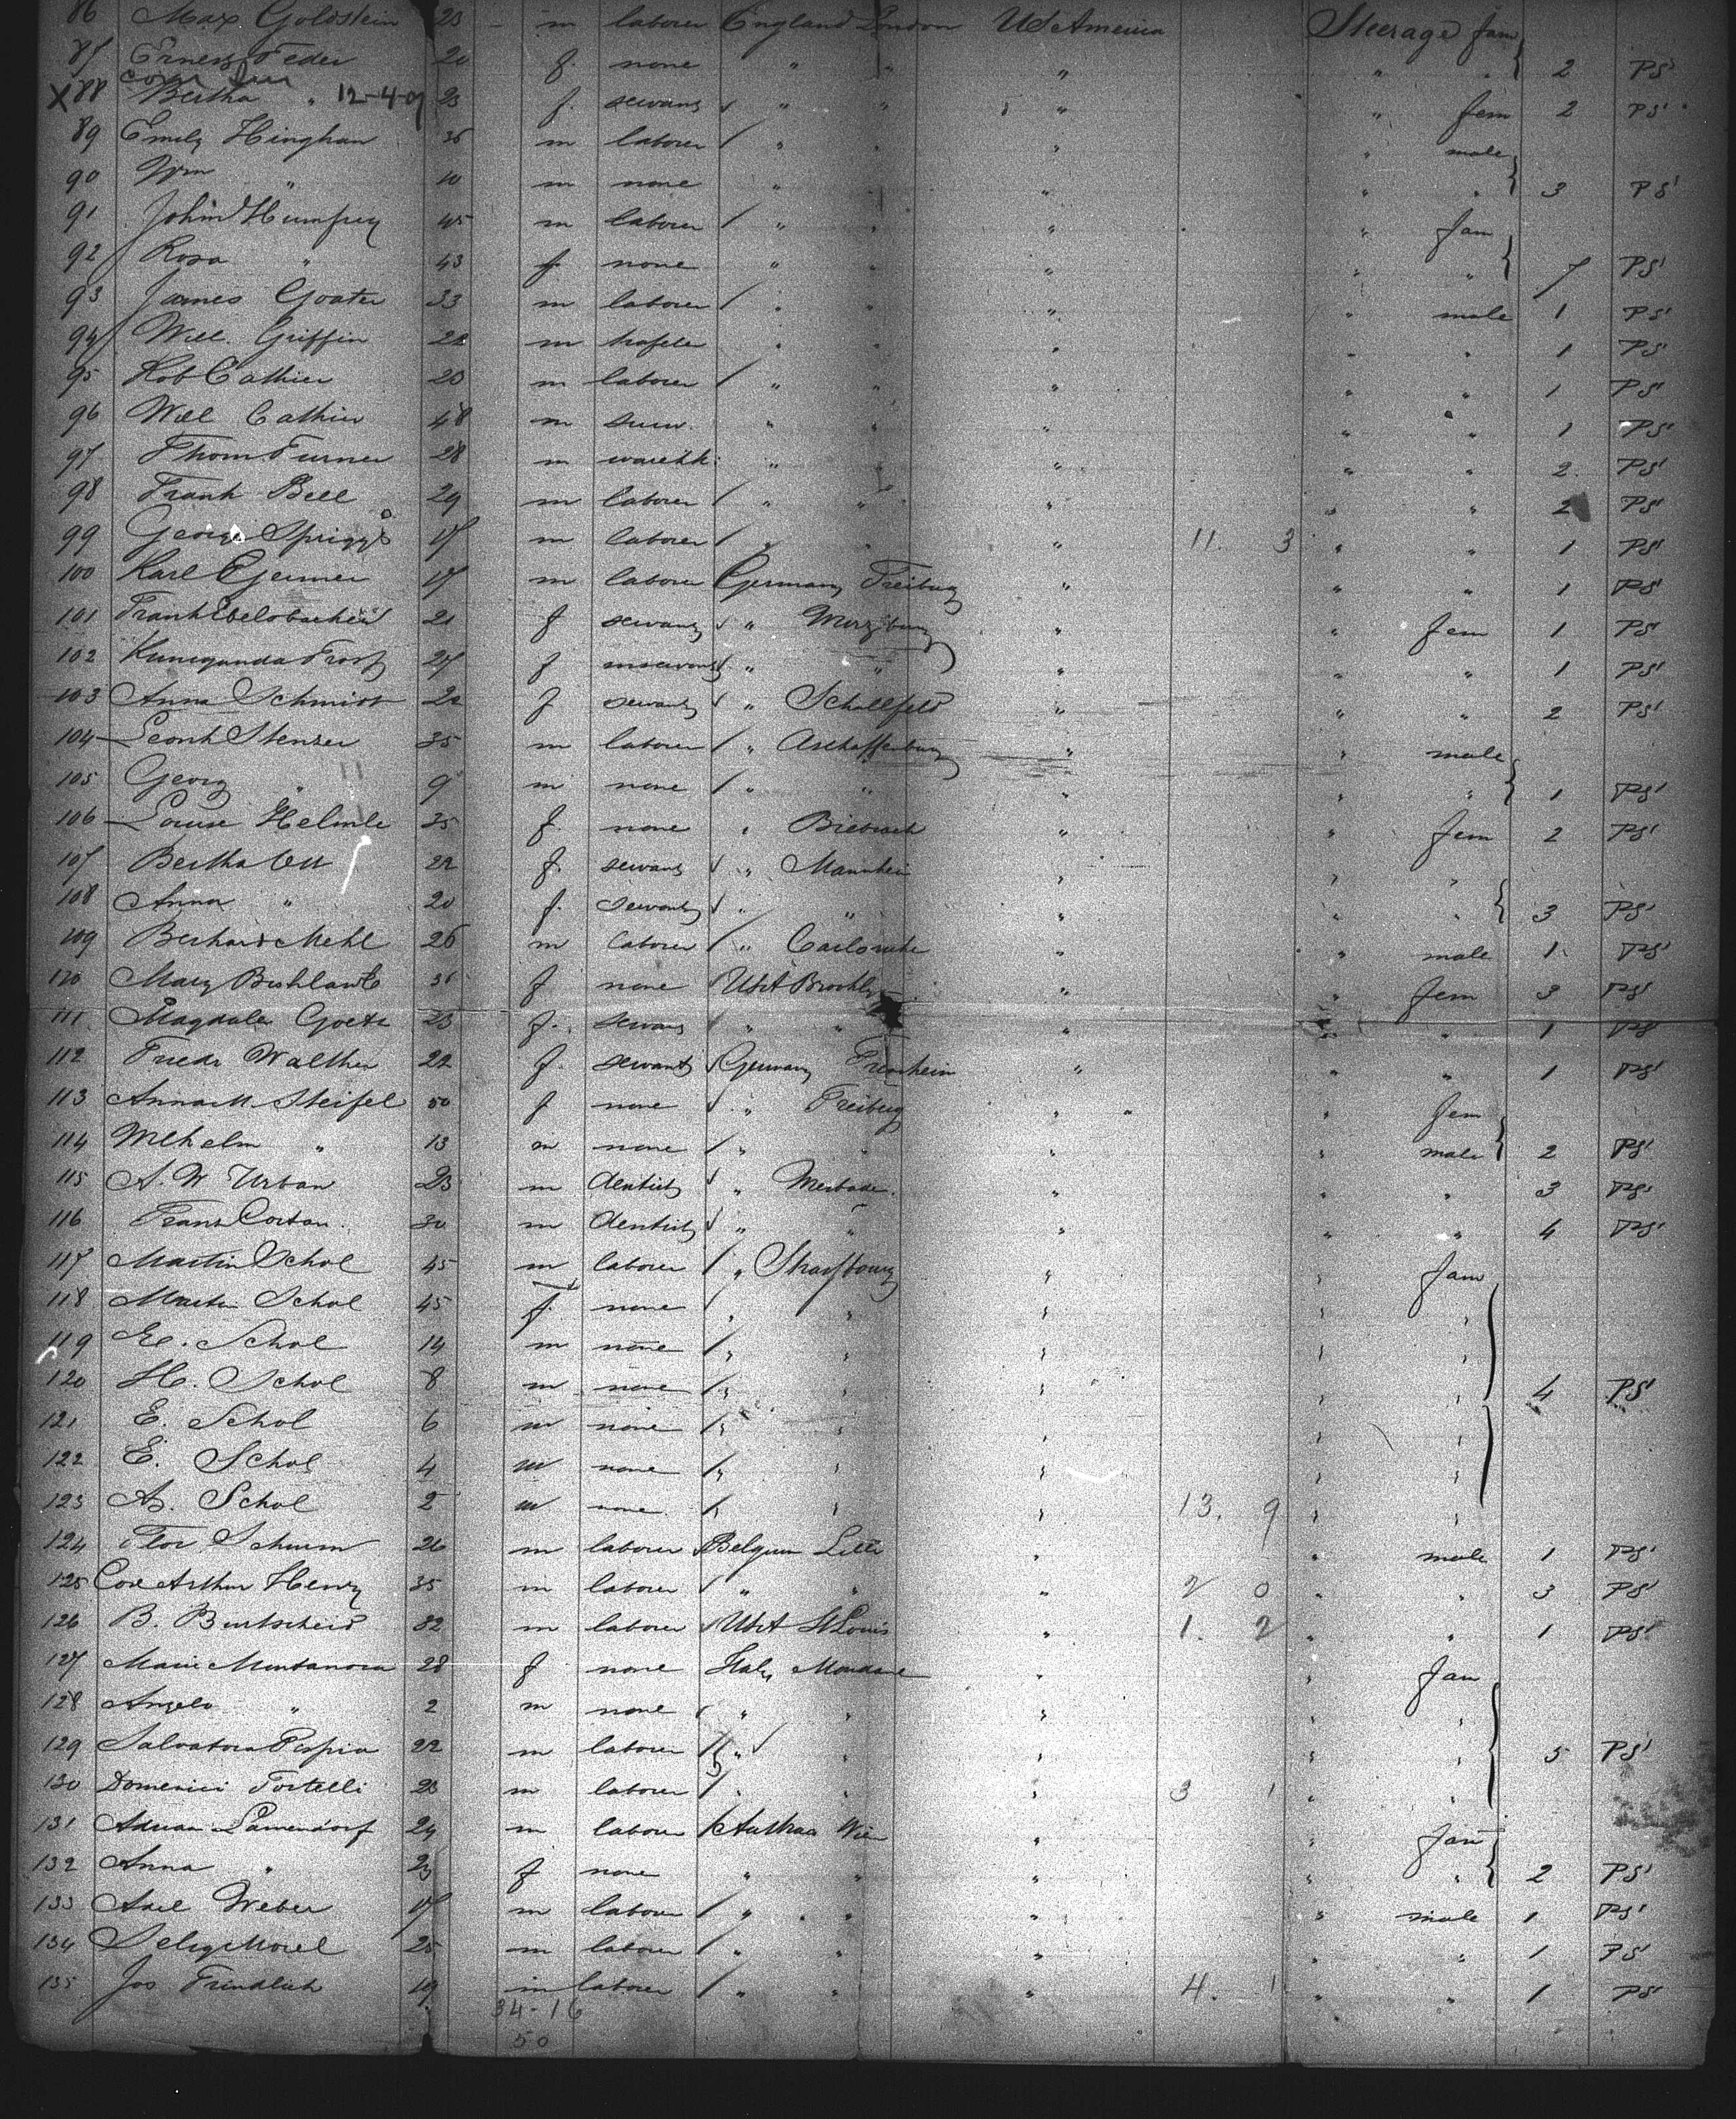 86 Max Goldstein 23 m laborer England London US America Steerage fam
87 Ernest Feder 20 f. none " " " " " 2 PS
X 88 Bertha " 12-4-09 23 f. servant " " " " fem 2 PS
89 Emely Hingham 36 m laborer " " " " male
90 Wm " 10 m none " " " " " 3 PS
91 John Humfrey 45 m laborer " " " " fam
92 Rosa " 43 f none " " " " " 7 PS
93 James Goater 33 m laborer " " " " male 1 PS
94 Will. Griffin 22 m " " " " " 1 PS
95 Rob Cathier 20 m laborer " " " " " 1 PS
96 Will Cathier 48 m " " " " " 1 PS
97 Thom. Turner 28 m " " " " " 2 PS
98 Frank Bell 29 m laborer " " " " " 2 PS
99 George Spriggs 17 m laborer " " " 11. 3 " " 1 PS
100 Karl Germer 17 m laborer Germany Freiburg " " " 1 PS
101 21 f servant " Wurzburg " " fem 1 PS
102 Kunegunda Trost 27 f " " " " " 1 PS
103 Anna Schmidt 22 f servant " Schallfeld " " " 2 PS
104 Leonh Stenzer 35 m laborer " Aschaffenburg " " male
105 Georg " 9 m none " " " " " 1 PS
106 Louise Helmle 35 f. none " Biebrach " " fem 2 PS
107 Bertha Ott 22 f. servant " Mannheim " " "
108 Anna " 20 f. servant " " " " " 3 PS
109 Berhard Mehl 26 m laborer " Carlsruhe " " male 1 PS
110 Mary 36 f none USA Brookly " " fem 3 PS
111 Magdale Goetz 23 f. servant " " " " " 1 PS
112 Friedr Walther 22 f. servant Germany " " " 1 PS
113 Anna M. Steifel 50 f none " Freiburg " " fem
114 Wilhelm " 13 m none " " " " male 2 PS
115 A. W. Urban 23 m dentist " " " " 3 PS
116 Franz 30 m dentist " " " " " 4 PS
117 Martin Schol 45 m laborer " Strassbourg " " fam
118 Martin Schol 45 f. none " " " " "
119 E. Schol 14 m none " " " " "
120 H. Schol 8 m none " " " " " 4 PS
121 E. Schol 6 m none " " " " "
122 E. Schol 4 m none " " " " "
123 A. Schol 2 m none " " " 13. 9 " "
124 Flor Schurm 26 m laborer Belgium " " male 1 PS
125 Cox Arthur Henry 35 m laborer " " " 2 0 " " 3 PS
126 B. Burtscheid 32 m laborer USA St Louis " 1. 2 " " 1 PS
127 Marie Montanora 28 f none Italy " " fam
128 Angelo " 2 m none " " " " "
129 Salvatora 22 m laborer " " " " " 5 PS
130 Domenici Tortelli 23 m laborer " " " 3 1 " "
131 Adrian Lamendorf 24 m laborer Austria Wien " " fam
132 Anna " 23 f none " " " " " 2 PS
133 Axel Weber 17 m laborer " " " " male 1 PS
134 25 m laborer " " " " " 1 PS
135 Jos. Friedlich 19 m laborer " " " 4. 1 " " 1 PS
34-16
50